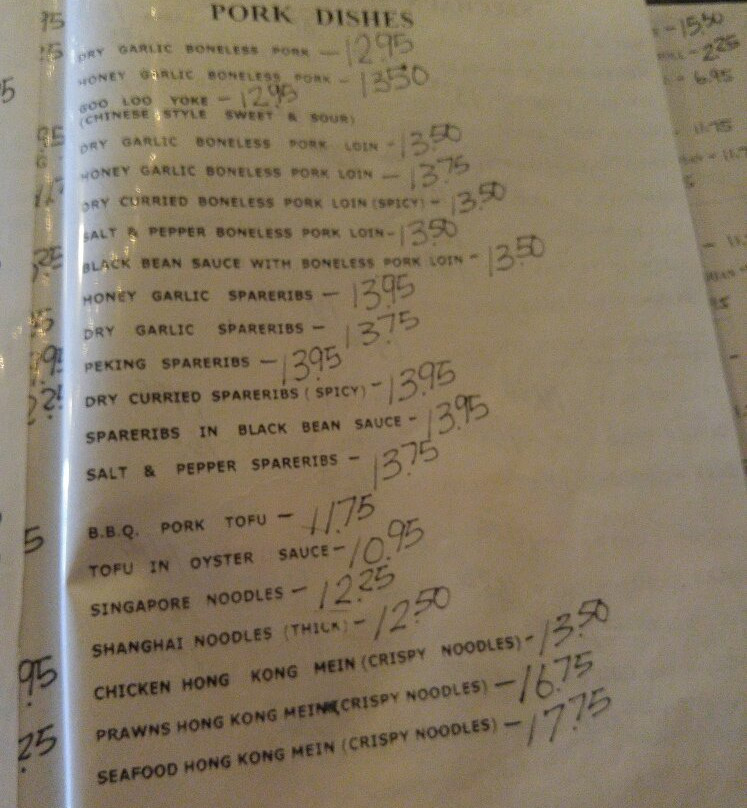 PORK DISHES
DRY GARLIC BONELESS PORK - 12.95
HONEY GARLIC BONELESS PORK - 13.50
GOO LOO YOKE - 12.95
(CHINESE STYLE SWEET & SOUR)
DRY GARLIC BONELESS PORK LOIN - 13.50
HONEY GARLIC BONELESS PORK LOIN - 13.75
DRY CURRIED BONELESS PORK LOIN (SPICY) - 13.50
SALT & PEPPER BONELESS PORK LOIN - 13.50
BLACK BEAN SAUCE WITH BONELESS PORK LOIN - 13.50
HONEY GARLIC SPARERIBS - 13.95
DRY GARLIC SPARERIBS - 13.75
PEKING SPARERIBS - 13.95
DRY CURRIED SPARERIBS (SPICY) - 13.95
SPARERIBS IN BLACK BEAN SAUCE - 13.95
SALT & PEPPER SPARERIBS - 13.75
B.B.Q. PORK TOFU - 11.75
TOFU IN OYSTER SAUCE - 10.95
SINGAPORE NOODLES - 12.25
SHANGHAI NOODLES (THICK) - 12.50
CHICKEN HONG KONG MEIN (CRISPY NOODLES) - 13.50
PRAWNS HONG KONG MEIN (CRISPY NOODLES) - 16.75
SEAFOOD HONG KONG MEIN (CRISPY NOODLES) - 17.75
- 15.50
- 2.25
- 6.95
- 11.75